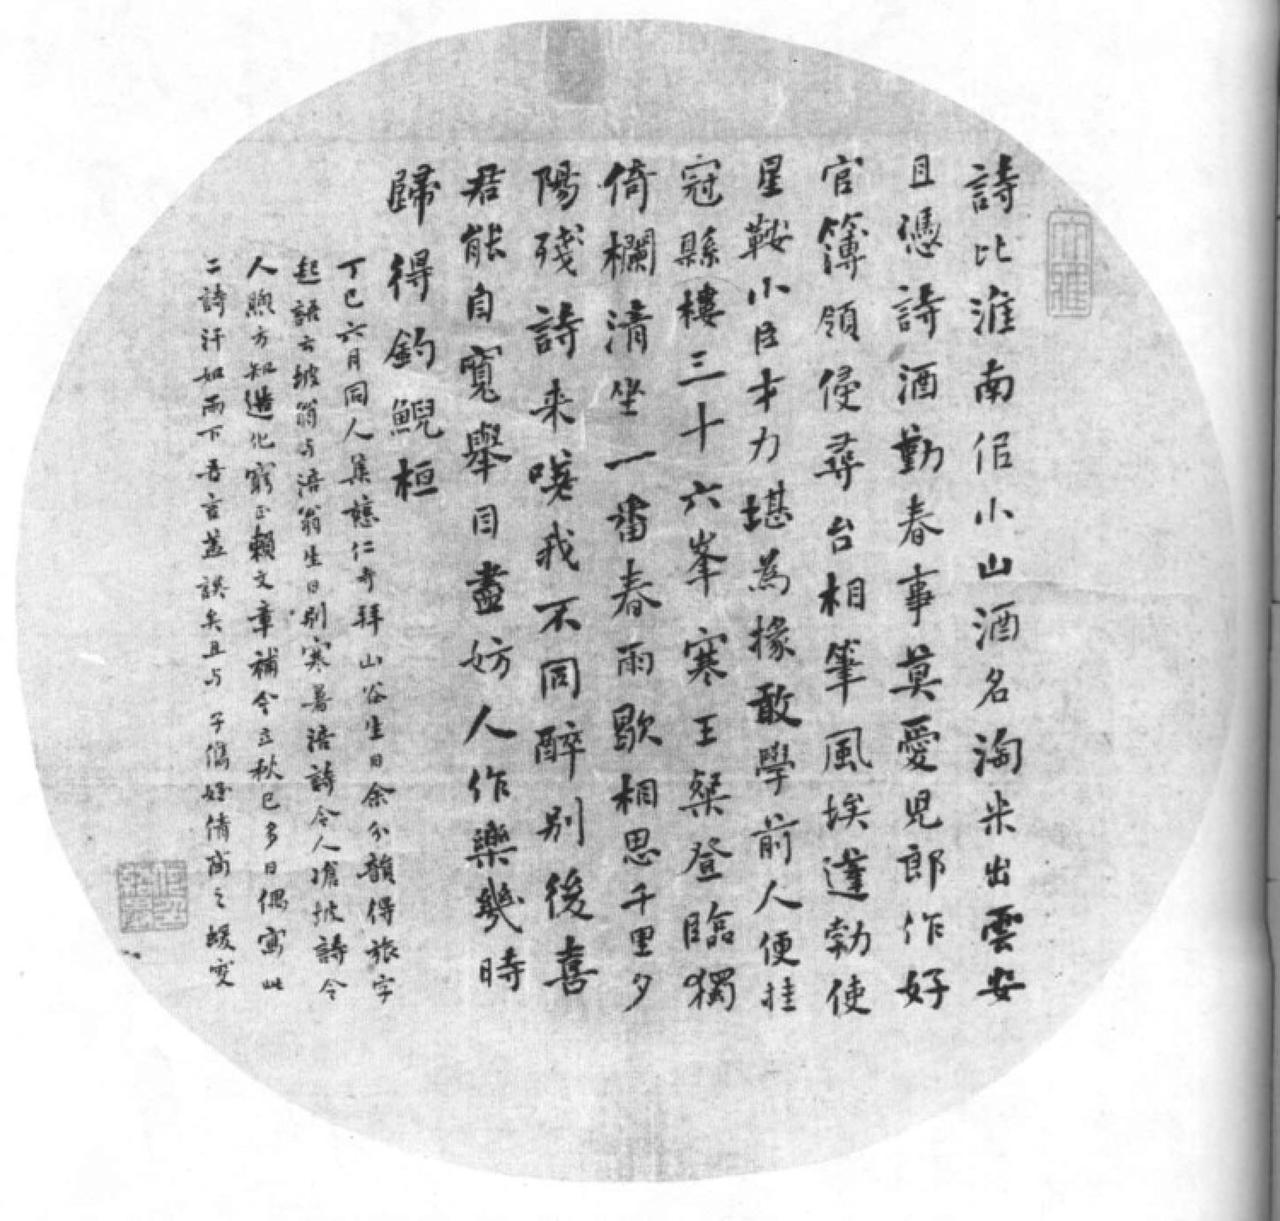 詩比淮南侣小山酒名淘米出雲安
且憑詩酒勤春事莫愛兒郎作好
官簿領侵尋台相筆風埃蓬勃使
星鞍小臣才力堪為掾敢學前人便挂
冠縣樓三十六峯寒王粲登臨獨
倚欄清坐一番春雨歇相思千里夕
陽殘詩来嘆我不同醉別後喜
君能自寬舉目盡妨人作樂幾時
歸得釣鯢桓
丁巳六月同人集慈仁寺拜山谷生日余分韻得旅字
起語云坡翁与涪翁生日別寒暑涪詩令人愴坡詩令
人煦方知造化窮正賴文章補今立秋已多日偶寫此
二詩汗如雨下吾言蓋誤矣且与子儁姪倩商之緩叟